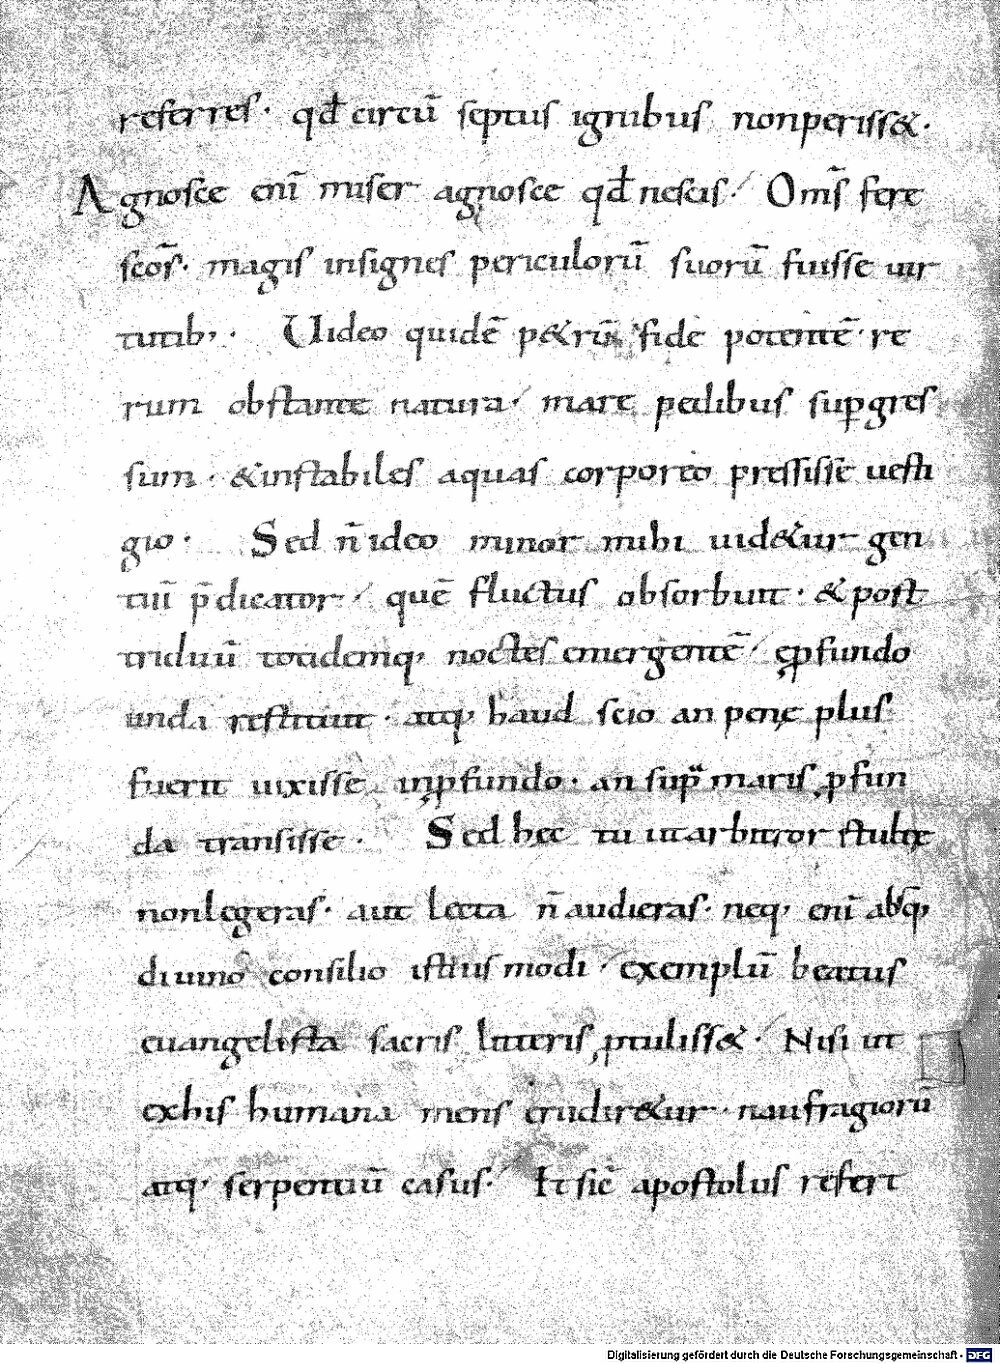 referres· qđ circū septus ignibus nonperiss&·
Agnosce eni̅ miser agnosce qđ nescis·/ Om̅s fere
sc̅or̅· magis insignes periculorū suorū fuisse uir
tutib,· Uideo quidē p&rū fide potentē· re
rum obstante natura·/ mare pedibus sup̲gres
sum· &instabiles aquas corporeo pressisse uesti
gio· Sed n̅ ideo minor mihi uid&ur gen
tiū p̅dicator·/ quē fluctus obsorbuit· &post
triduū totidemq, noctes emergentē·/ eꝓfundo
unda restituit· atq, haud scio an pene plus
fuerit uixisse inꝓfundo· an sup̲ maris ꝓfun
da transisse· Sed hec tu utarbitror stulte
nonlegeras· aut lecta n̅ audieras· neq, eni̅ absq,
diuino consilio istius modi·/ exemplū beatus
euangelista sacris litteris ꝓtuliss&·/ Nisi ut
exhis humana mens erudir&ur· naufragiorū
atq, serpentiū casus·/ Et sic̅ apostolus refert
Digitalisierung gefördert durch die Deutsche Forschungsgemeinschaft - DFG